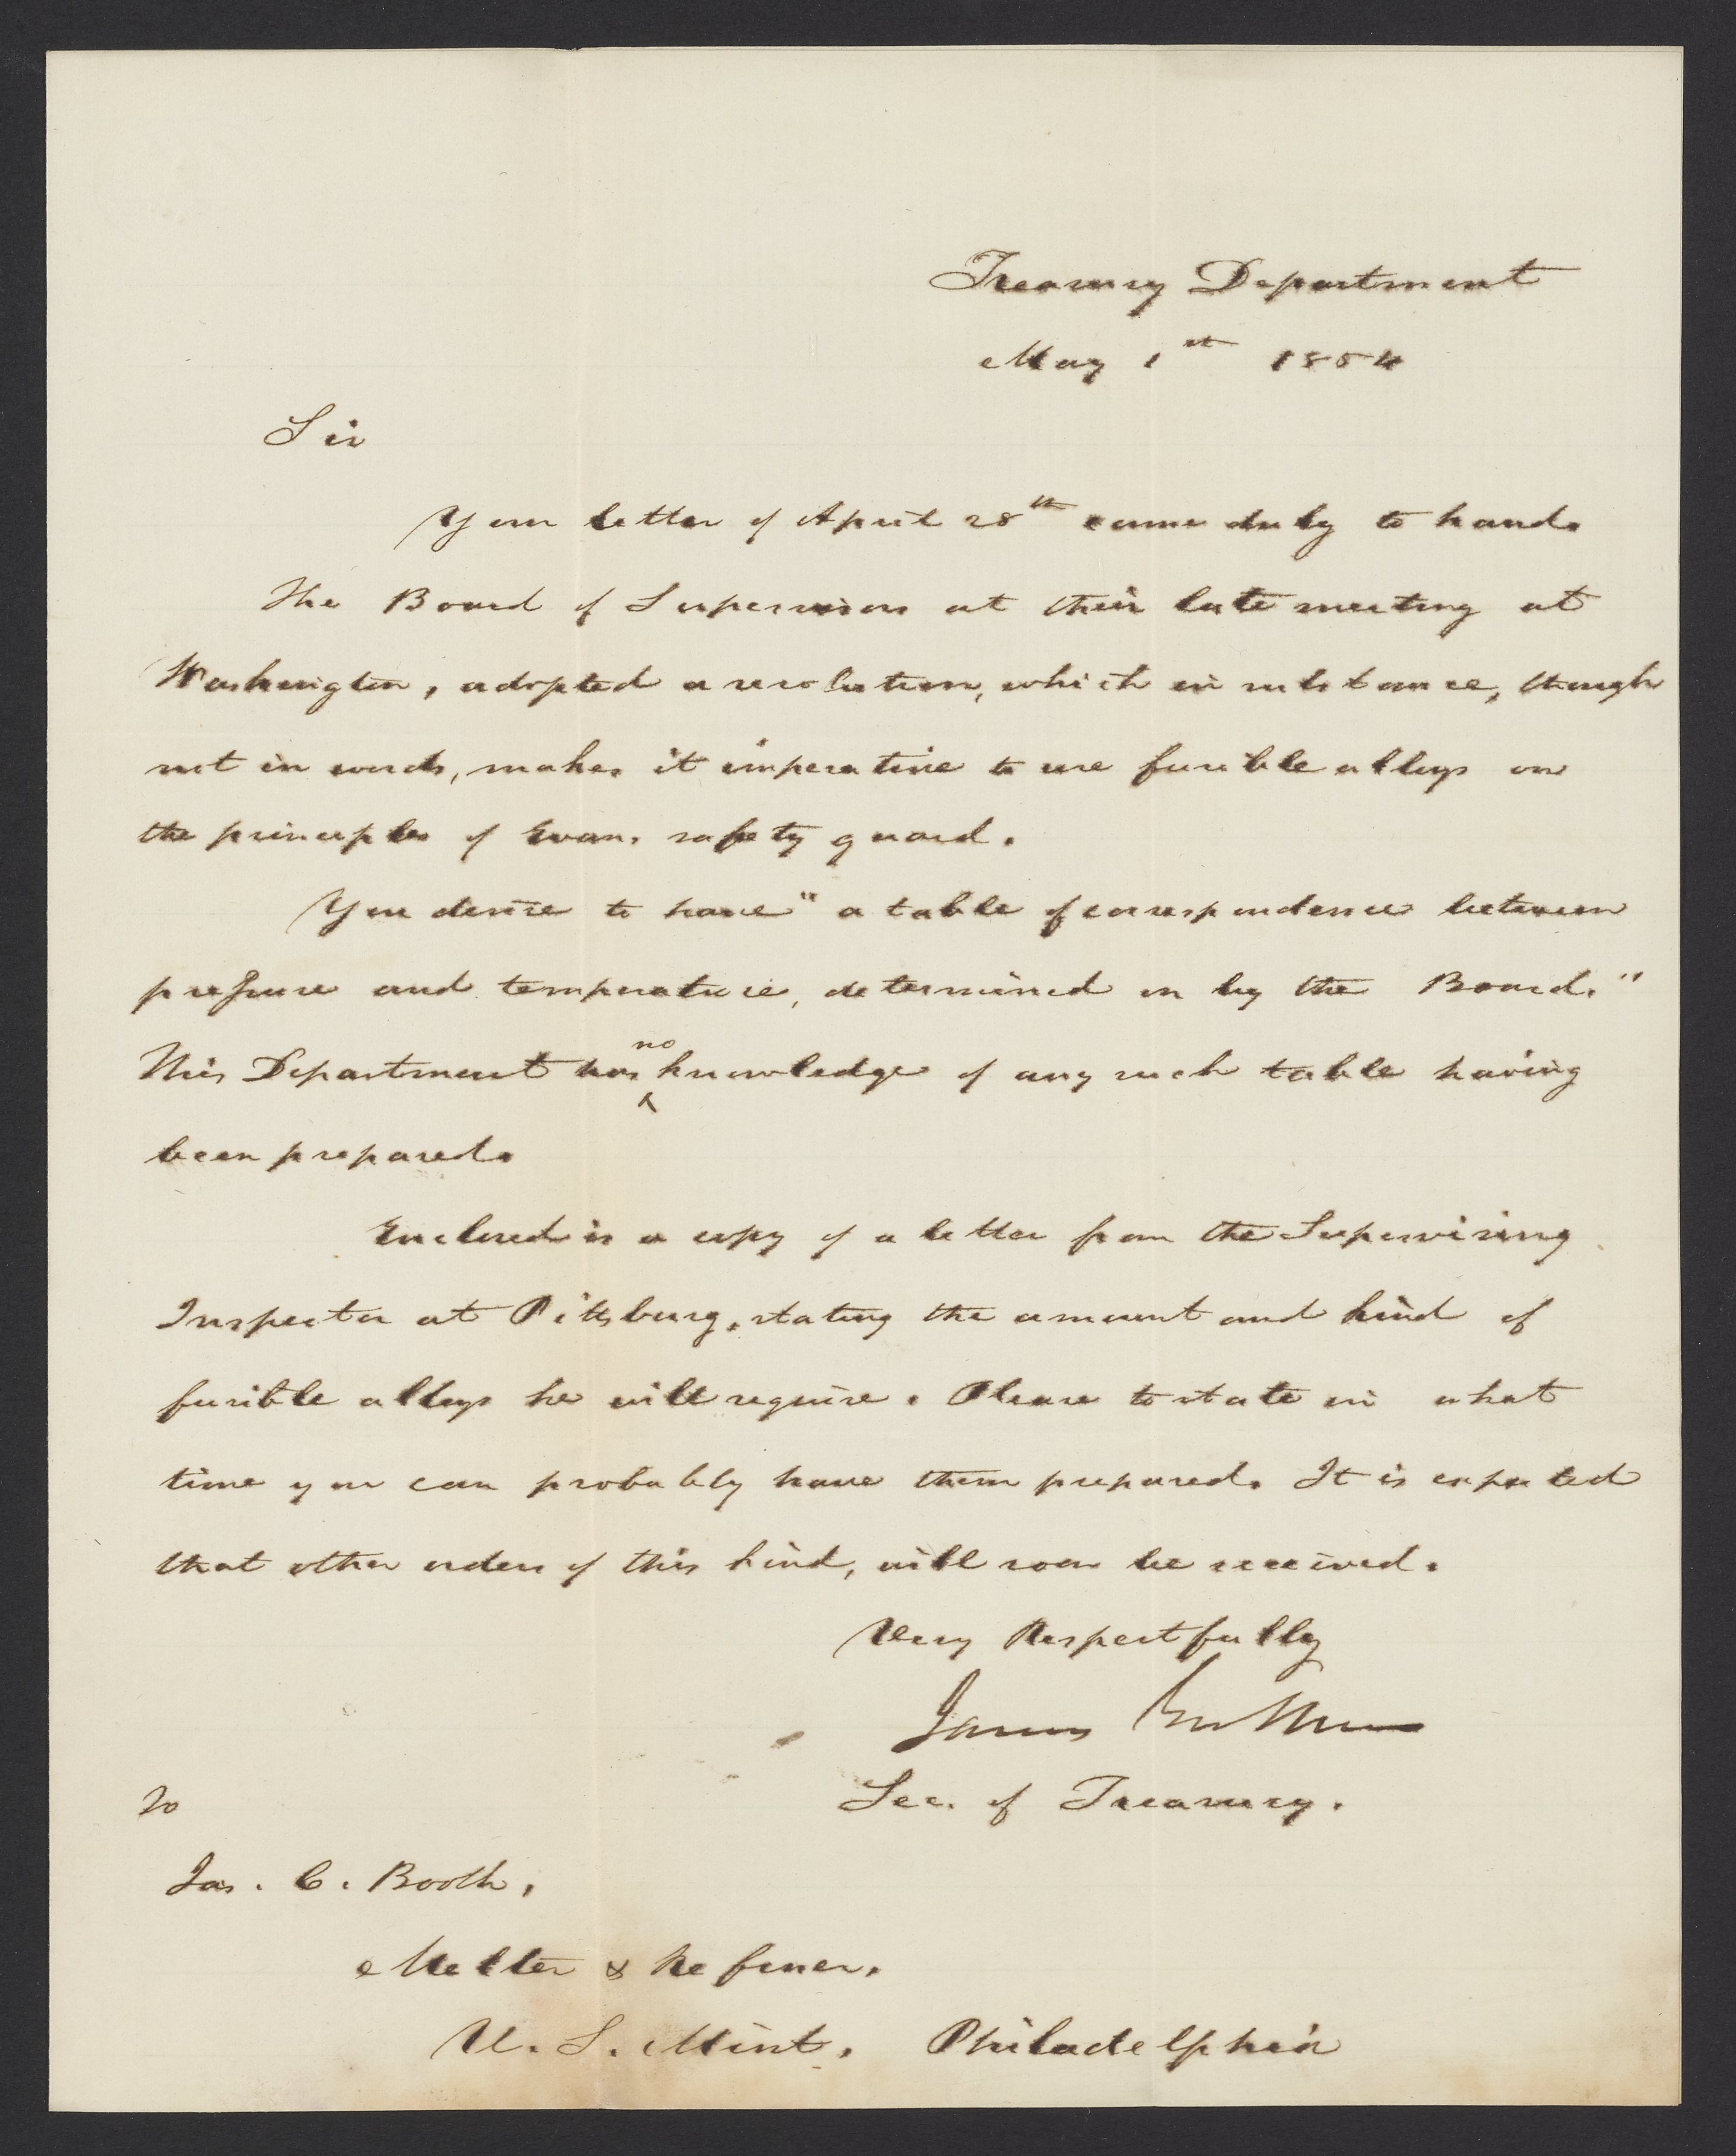 Treasury Department
May 1st 1854
Sir
Your letter of April 28th came duly to hand.
The Board of Supervisors at their late meeting at
Washington, adopted a resolution, which in substance, though
not in words, makes it imperative to use fusible alloys on
the principles of Evans safety guard.
You desire to have "a table of correspondence between
pressure and temperature, determined on by the Board."
This Department has no knowledge of any such table having
been prepared.
Enclosed is a copy of a letter from the Supervising
Inspector at Pittsburg, stating the amount and kind of
fusible alloys he will require. Please to state in what
time you can probably have them prepared. It is expected
that other orders of this kind, will soon be received.
Very Respectfully
James Guthrie
Sec. of Treasury.
To
Jas. C. Booth,
Melter & Refiner.
U. S. Mint, Philadelphia